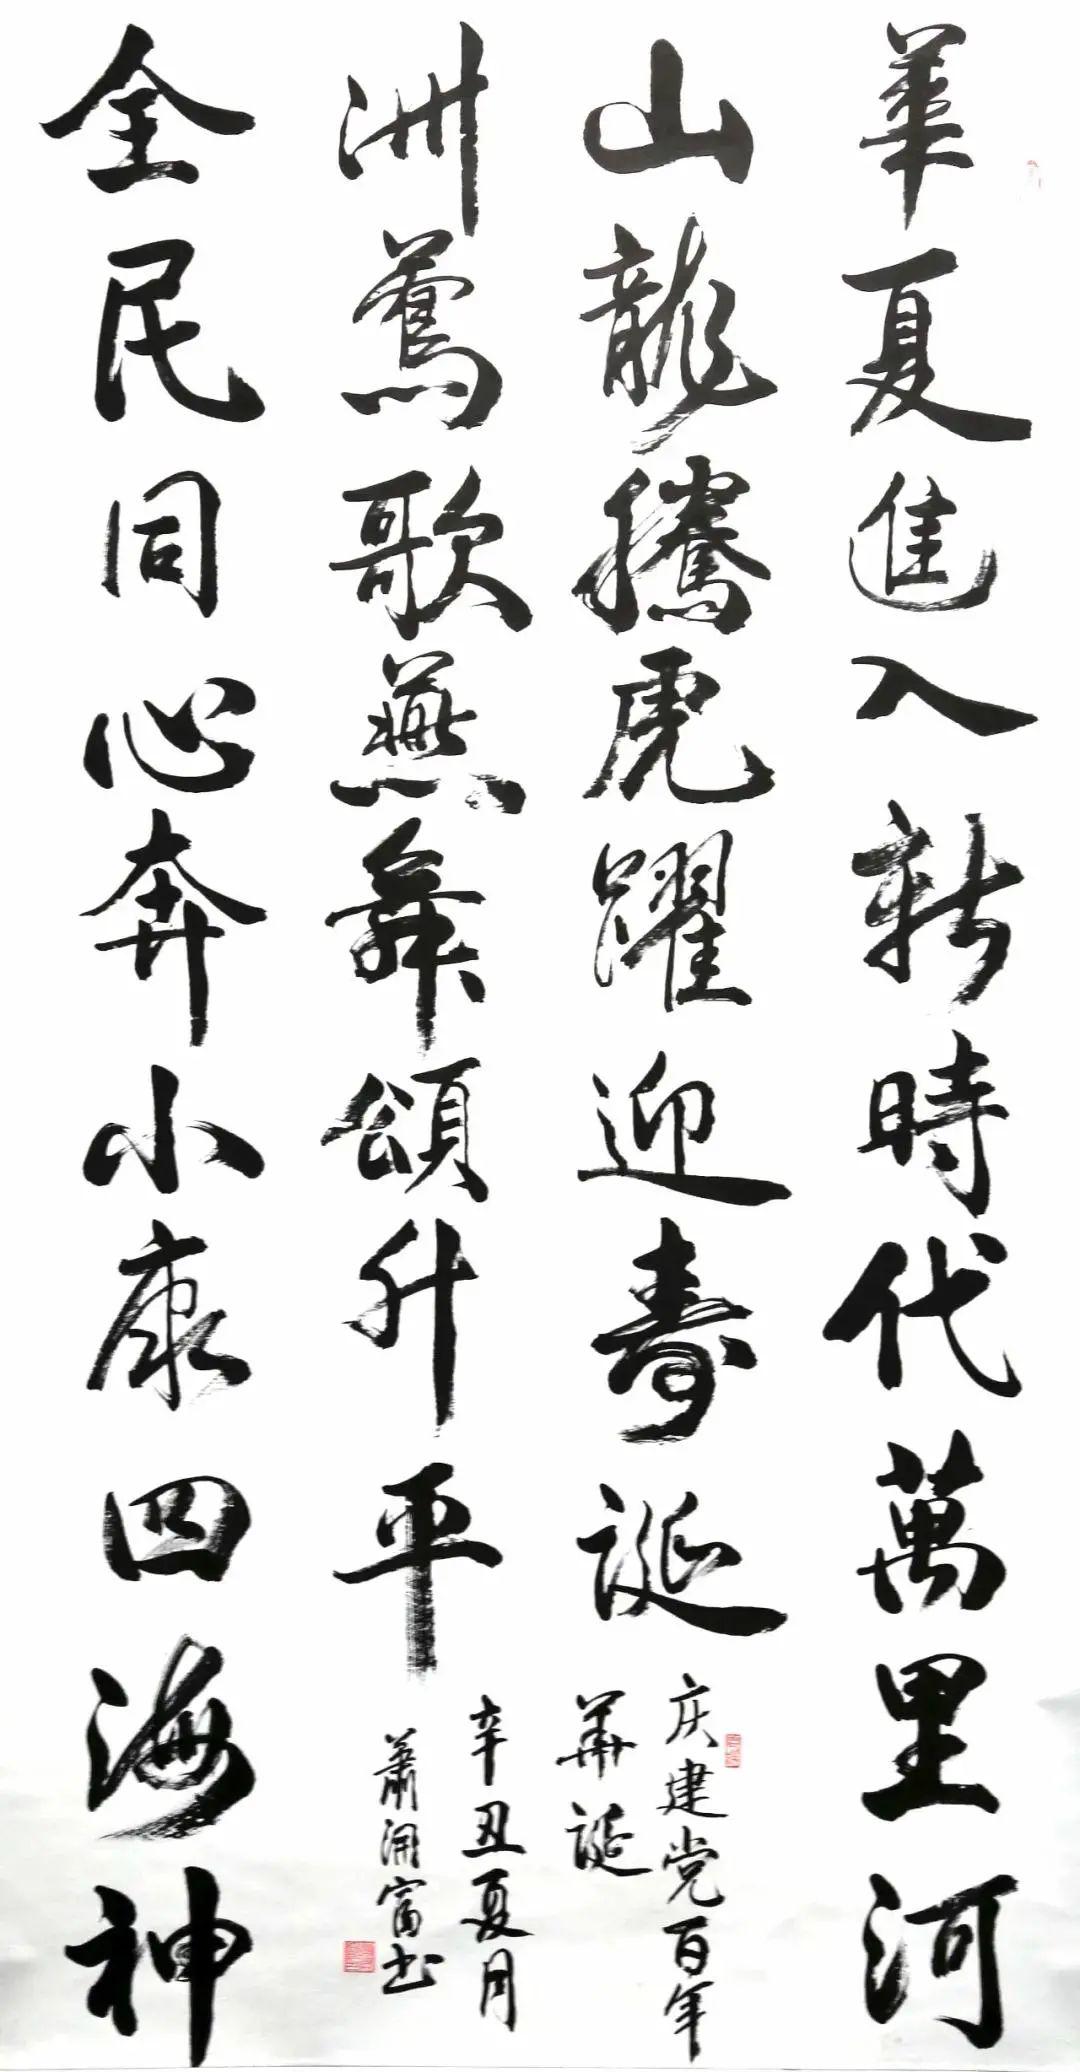 華夏進入新時代萬里河
山龍騰虎躍迎壽誕
庆建党百年
華誕
全民同心奔小康四海神
洲鶯歌燕舞頌升平
辛丑夏月
蕭富书